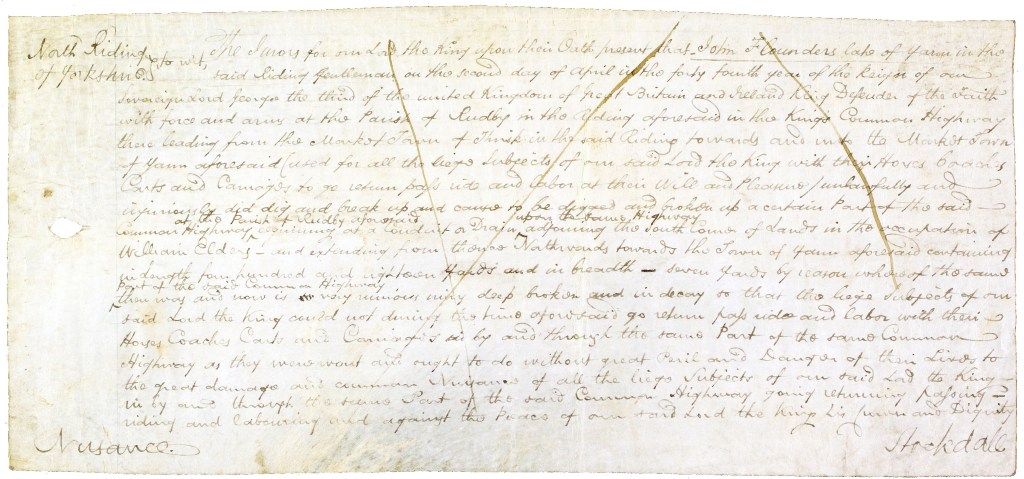 North Riding
of Yorkshire
to wit
The Jurors for our Lord the King upon their Oath present that John Flounders late of Yarm in the
said Riding Gentleman on the second day of April in the forty fourth year of the Reign of our
Sovereign Lord George the third of the united Kingdom of Great Britain and Ireland King Defender of the Faith
with force and arms at the Parish of Rudby in the Riding aforesaid in the Kings Common Highway
there leading from the Market Town of Thirsk in the said Riding towards and into the Market Town
of Yarm aforesaid (used for all the liege Subjects of our said Lord the King with their Horses Coaches
Carts and Carriages to go return pass ride and labor at their Will and Pleasure) unlawfully and
injuriously did dig and break up and cause to be digged and broken up a certain Part of the said
at the Parish of Rudby aforesaid upon the same Highway
Common Highway beginning at a Conduit or Drain adjoining the South Corner of Lands in the occupation of
William Elders and extending from thence Northwards towards the Town of Yarm aforesaid containing
in length four hundred and eighteen yards and in breadth seven yards by reason whereof the same
Part of the said Common Highway
then was and now is very ruinous miry deep broken and in decay so that the liege Subjects of our
said Lord the King could not during the time aforesaid go return pass ride and labor with their
Horses Coaches Carts and Carriages in by and through the same Part of the same Common
Highway as they were wont and ought to do without great Peril and Danger of their Lives to
the great damage and common Nuisance of all the liege Subjects of our said Lord the King
in by and through the same Part of the said Common Highway going returning passing
riding and labouring and against the Peace of our said Lord the King his Crown and Dignity
Nusance
Stockdale